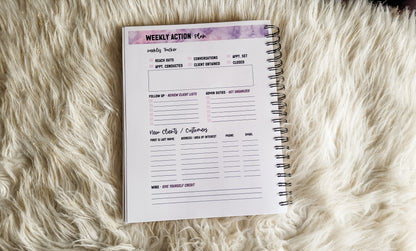 WEEKLY ACTION Plan
Weekly Tracker
REACH OUTS CONVERSATIONS APPT. SET
APPT. CONDUCTED CLIENT OBTAINED CLOSED
FOLLOW UP - REVIEW CLIENT LISTS ADMIN DUTIES - GET ORGANIZED
New Clients / Customers
FIRST & LAST NAME ADDRESS / AREA OF INTEREST PHONE EMAIL
WINS - GIVE YOURSELF CREDIT